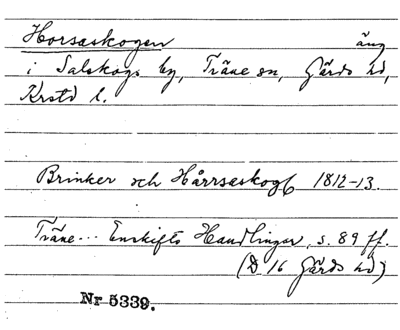 Horsaskogen äng
i Salskogs by, Träne sn, Gärds hd,
Krstd l.
Brinker och Hårrsaskog 1812-13.
Träne... Enskifts Handlingar, s. 89 ff.
(D 16 Gärds hd)
Nr 5339.